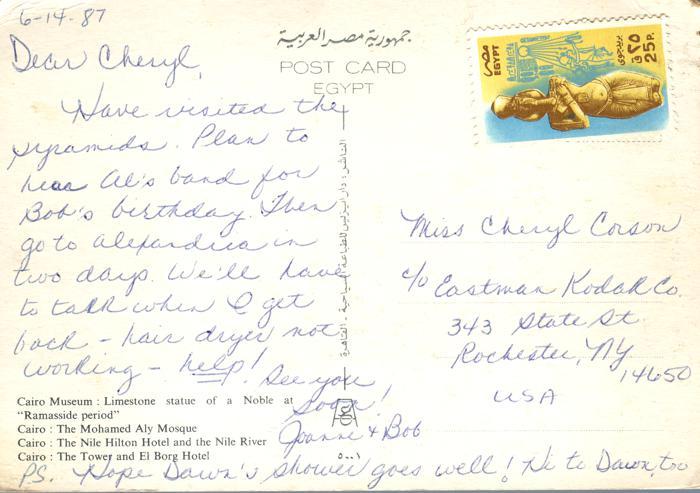 6-14-87
Dear Cheryl,
Have visited the
pyramids. Plan to
hear Al's band for
Bob's birthday. Then
go to Alexandria in
two days. We'll have
to talk when I get
back - hair dryer not
working - help!
See you
soon!
Joanne & Bob
PS. Hope Dawn's shower goes well! Hi to Dawn, too
Cairo Museum : Limestone statue of a Noble at
"Ramasside period"
Cairo : The Mohamed Aly Mosque
Cairo : The Nile Hilton Hotel and the Nile River
Cairo : The Tower and El Borg Hotel
جمهورية مصر العربية
POST CARD
EGYPT
٥٠٠١
مصر
EGYPT
بريد جوى
٢٥ ق
25 P.
Miss Cheryl Corson
c/o Eastman Kodak Co.
343 State St
Rochester, NY
14650
USA